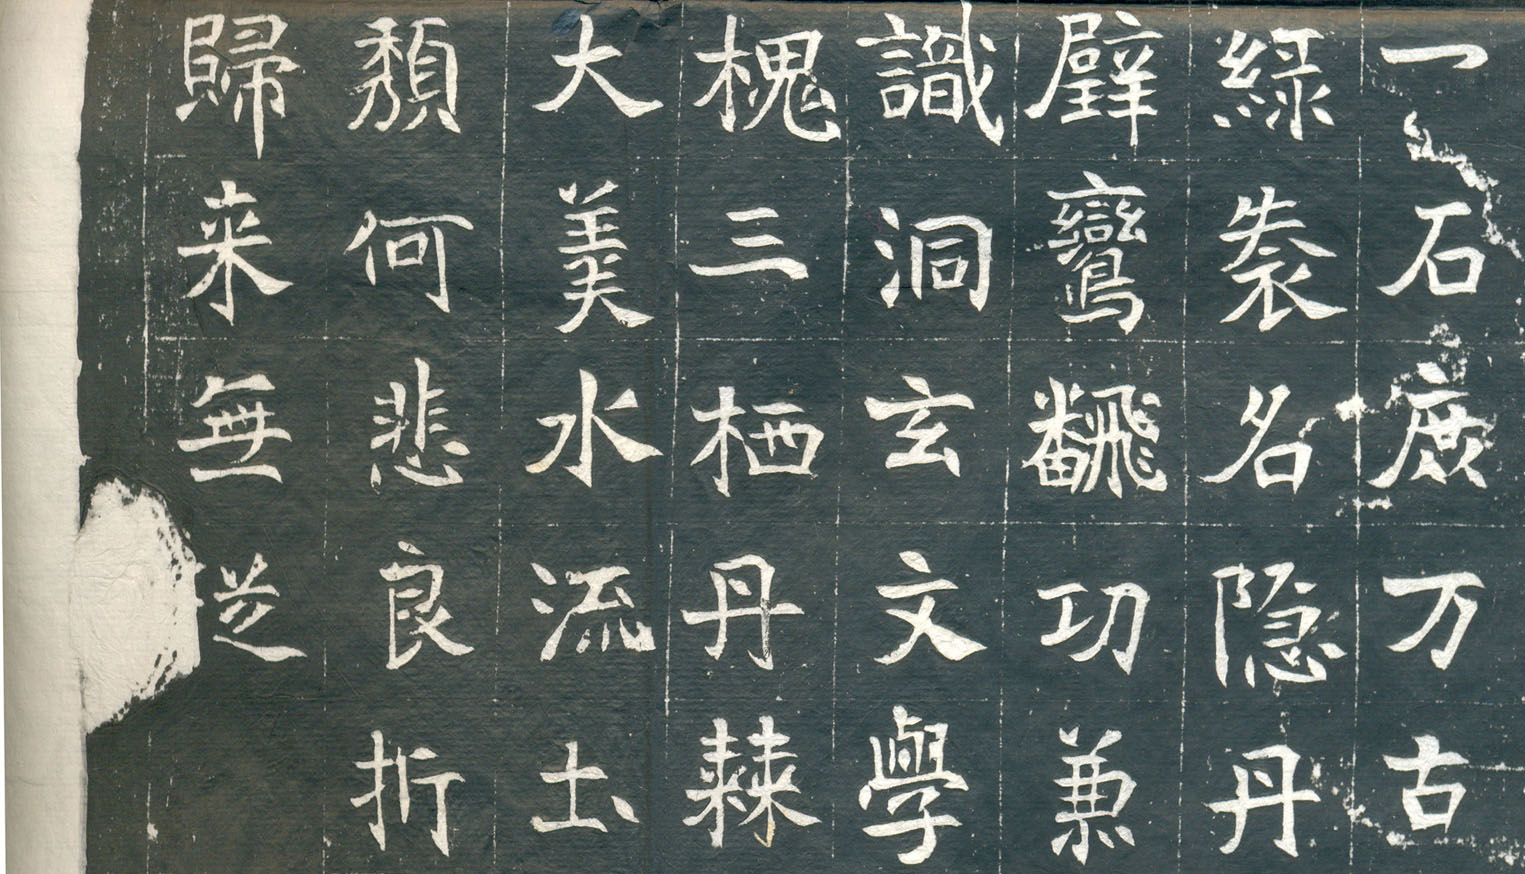 一石庶万古
緑袠名隐丹
壁鸞飜功兼
識洞玄文學
槐三栖丹棘
大美水流土
頽何悲良折
歸来無